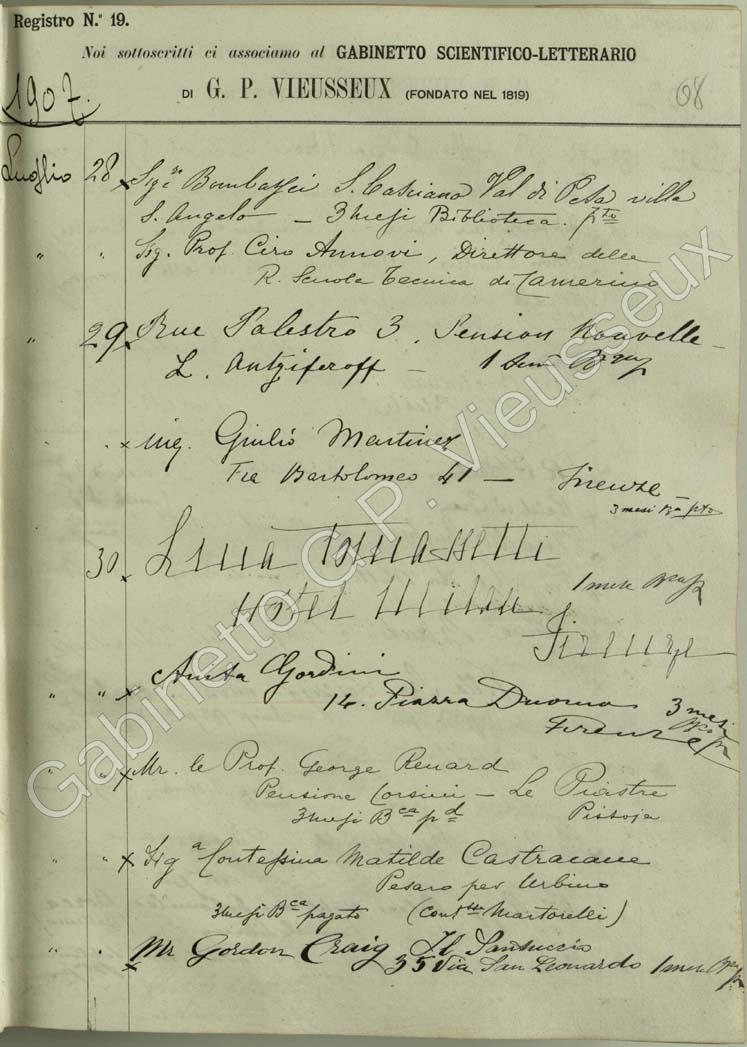 Registro N.° 19.
Noi sottoscritti ci associamo al GABINETTO SCIENTIFICO-LETTERARIO
1907.
DI G. P. VIEUSSEUX (FONDATO NEL 1819)
08
Luglio 28 x Sigri S. Casciano Val di Pesa villa
S. Angelo — 3 mesi Biblioteca. pto
" " Sig. Prof. Ciro Annovi, Direttore della
R. Scuola Tecnica di Camerino
" 29 x Rue Palestro 3, Pension Nouvelle
L. Antziferoff — 1
" x Ing. Giulio Martinez
Fra Bartolomeo 41 — Firenze —
3 mesi Bca pto
30 x Lina Tomassetti
Hotel Milan 1 mese Bca
Firenze
" " x Anita Gordini
14. Piazza Duomo 3 mesi
Firenze
" x Mr. le Prof. George Renard
Pensione Corsini — Le Piastre
3 mesi Bca pd Pistoja
" " x Siga Contessina Matilde Castracane
Pesaro per Urbino
3 mesi Bca pagato (Martorelli)
" " x Mr Gordon Craig Il Santuccio
35 Via San Leonardo 1 mese
Gabinetto G.P. Vieusseux